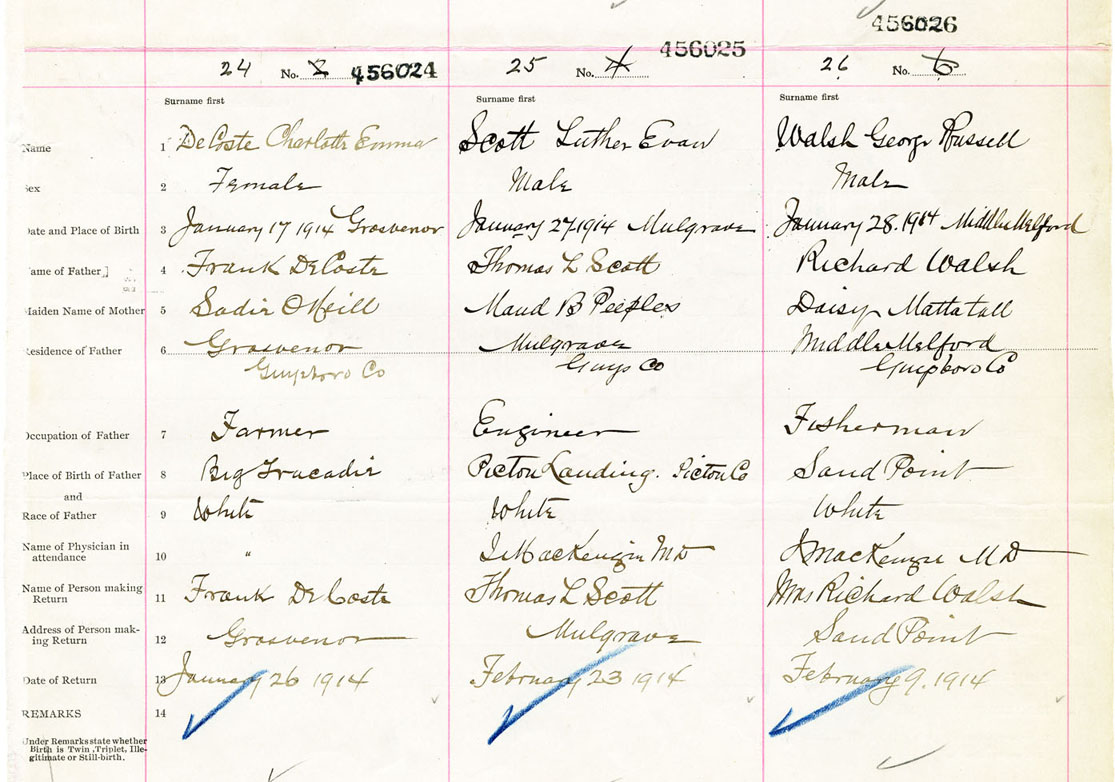 456026
456025
24 No. 456024
25 No. 4
26 No. 6
Surname first
Surname first
Surname first
Name 1 DeCoste Charlotte Emma Scott Luther Evan Walsh George Russell
Sex 2 Female Male Male
Date and Place of Birth 3 January 17 1914 Grosvenor January 27 1914 Mulgrave January 28. 1914 Middle Melford
Name of Father 4 Frank DeCoste Thomas L Scott Richard Walsh
Maiden Name of Mother 5 Sadie O'Neill Maud B Peeples Daisy Mattatall
Residence of Father 6 Grosvenor Mulgrave Middle Melford
Guysboro Co Guys Co Guysboro Co
Occupation of Father 7 Farmer Engineer Fisherman
Place of Birth of Father 8 Big Tracadie Picton Landing. Picton Co Sand Point
and
Race of Father 9 White White White
Name of Physician in
attendance 10 " MacKenzie MD J MacKenzie MD
Name of Person making
Return 11 Frank DeCoste Thomas L Scott Mrs Richard Walsh
Address of Person mak-
ing Return 12 Grosvenor Mulgrave Sand Point
Date of Return 13 January 26 1914 February 23 1914 February 9. 1914
REMARKS 14
Under Remarks state whether
Birth is Twin, Triplet, Ille-
gitimate or Still-birth.